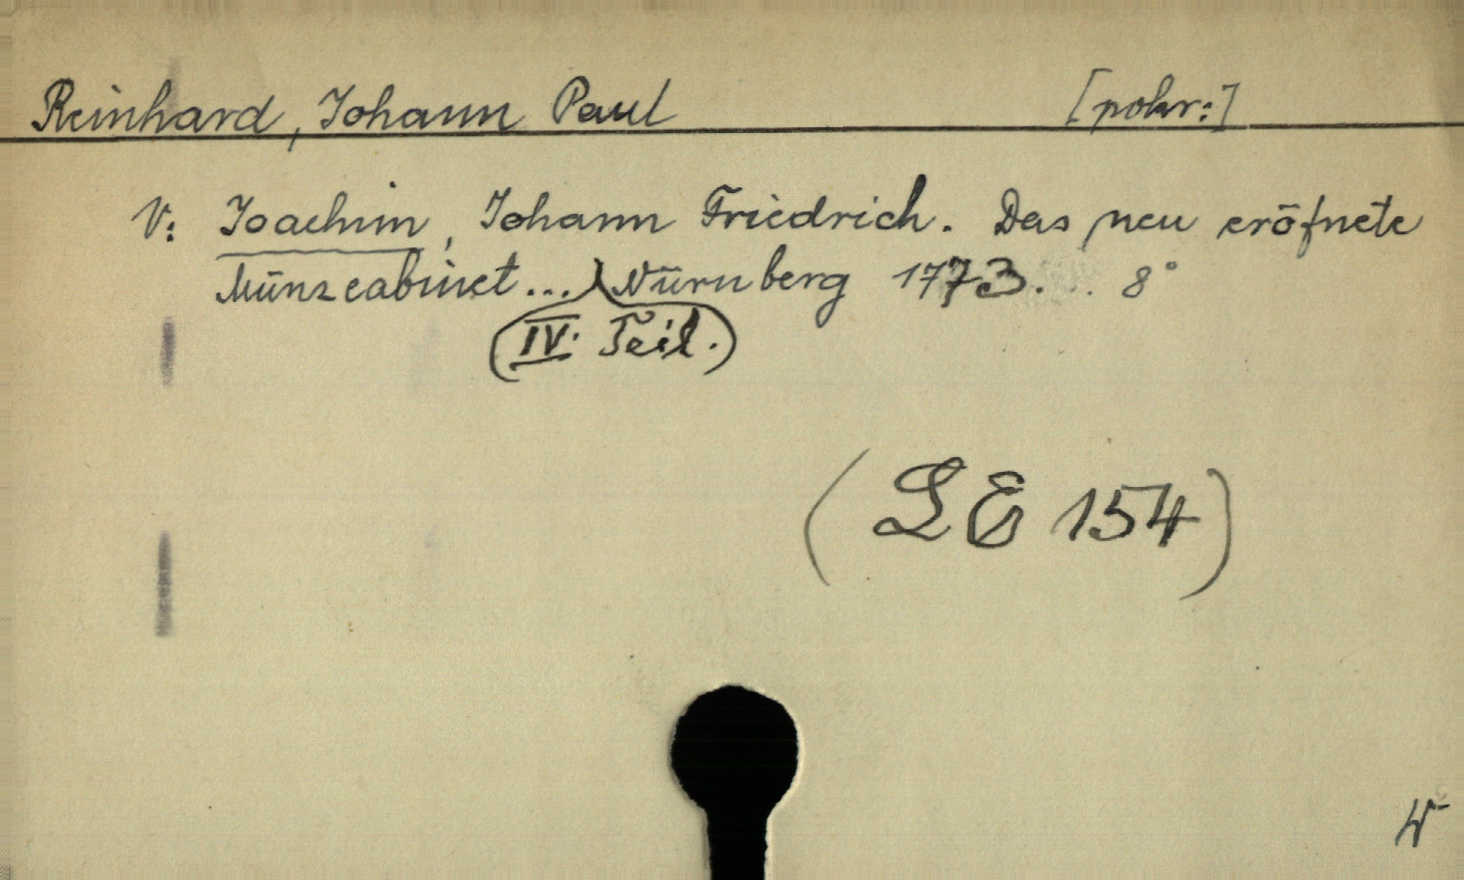 Reinhard, Johann Paul [pokr:]
V: Joachim, Johann Friedrich. Das neu eröfnete
Münzcabinet... Nürnberg 1773. 8°
(IV. Teil.)
(LE 154)